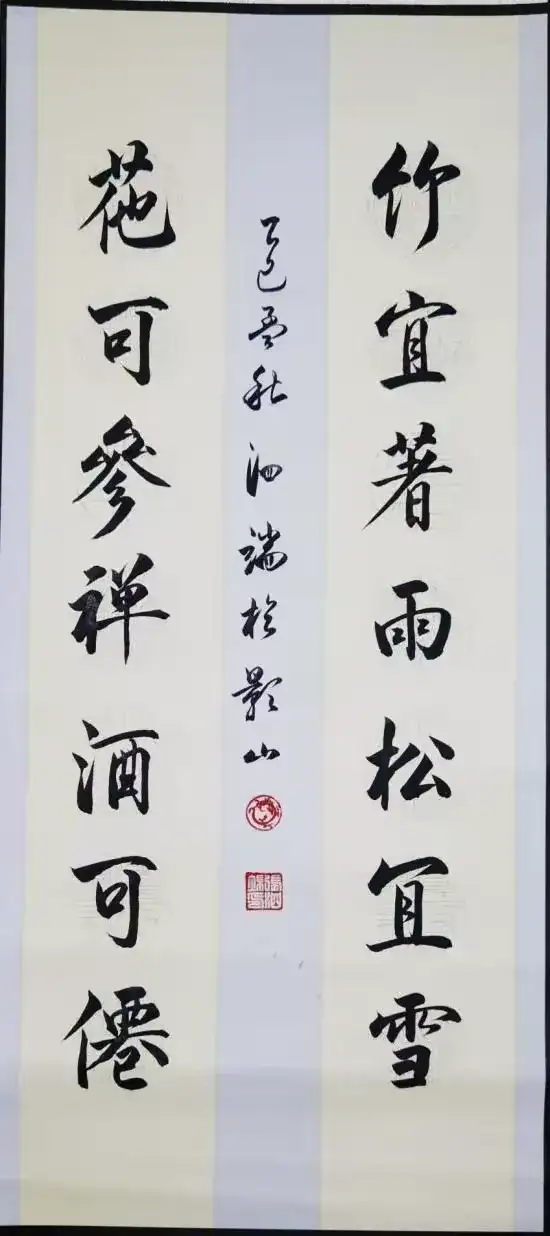 竹宜著雨松宜雪
花可參禅酒可僊
乙巳孟秋泗端於影山